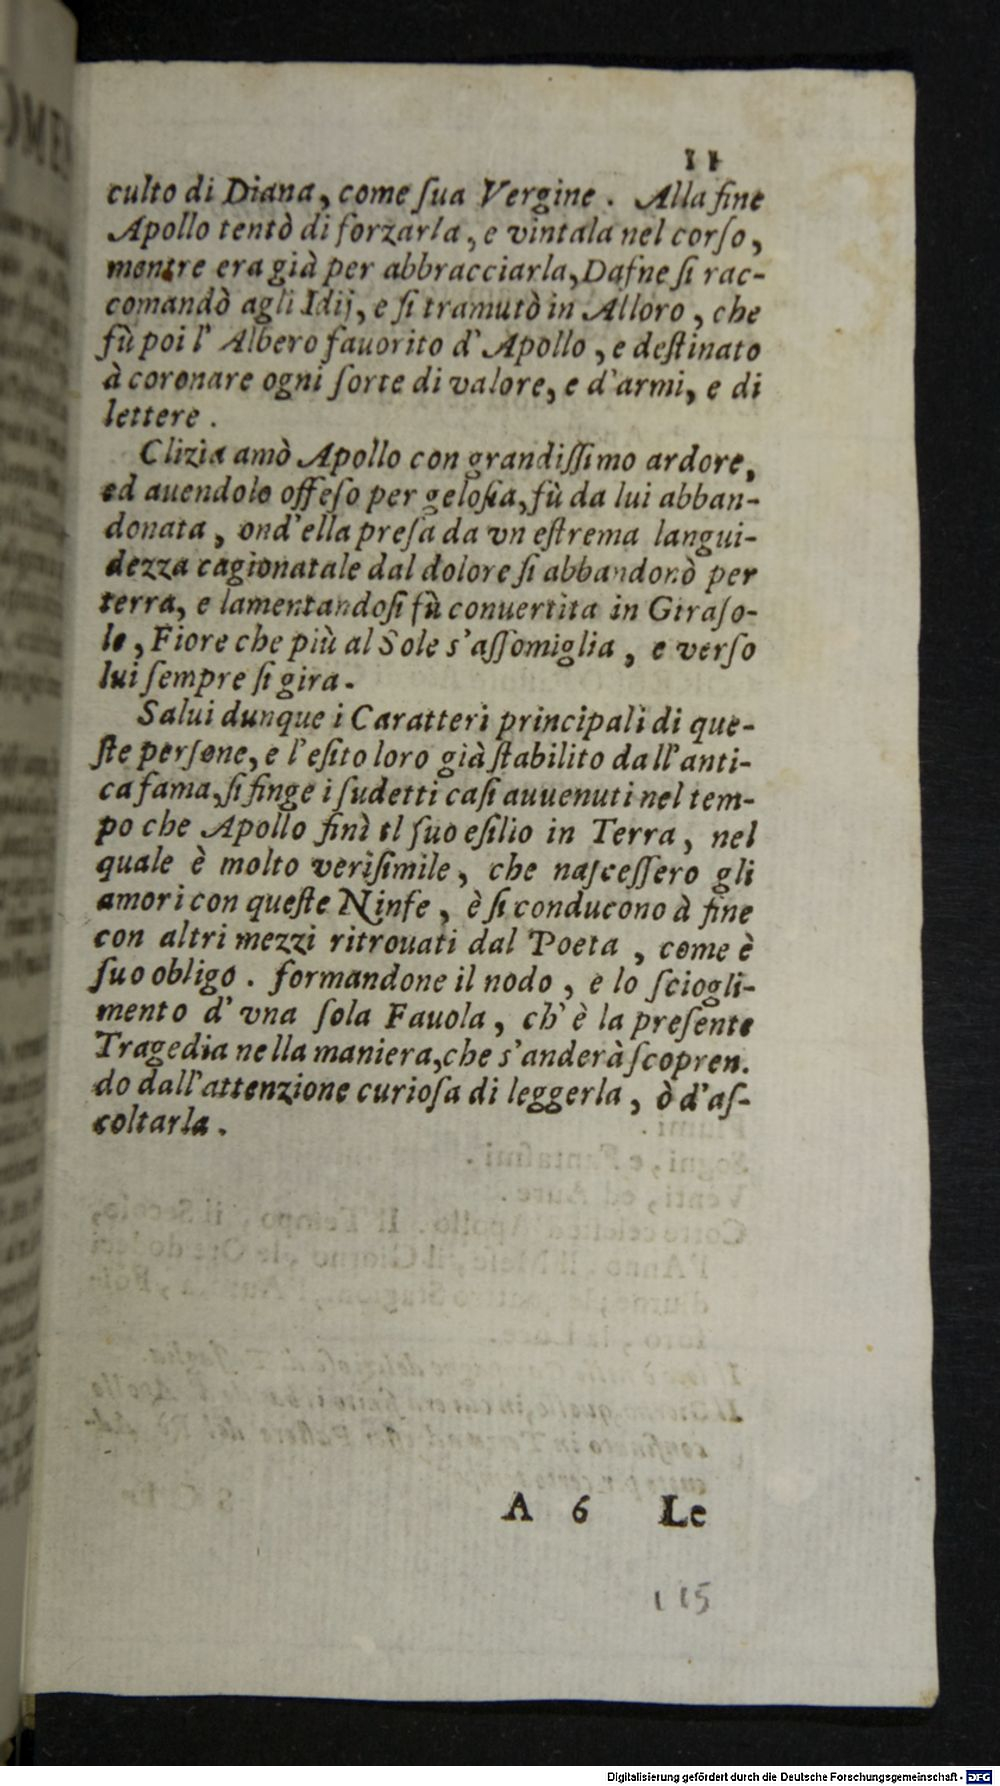 11
culto di Diana, come ſua Vergine. Alla fine
Apollo tentò di forzarla, e vintala nel corſo,
mentre era già per abbracciarla, Dafne ſi rac-
comandò agli Idij, e ſi tramutò in Alloro, che
fù poi l' Albero fauorito d' Apollo, e deſtinato
à coronare ogni ſorte di valore, e d'armi, e di
lettere.
Clizia amò Apollo con grandiſſimo ardore,
ed auendolo offeſo per geloſia, fù da lui abban-
donata, ond' ella preſa da vn eſtrema langui-
dezza cagionatale dal dolore ſi abbandonò per
terra, e lamentandoſi fù conuertita in Giraſo-
le, Fiore che più al Sole s'aſſomiglia, e verſo
lui ſempre ſi gira.
Salui dunque i Caratteri principali di que-
ſte perſone, e l'eſito loro già ſtabilito dall' anti-
ca fama, ſi finge i ſudetti caſi auuenuti nel tem-
po che Apollo finì il ſuo eſilio in Terra, nel
quale è molto veriſimile, che naſceſſero gli
amori con queſte Ninfe, è ſi conducono à fine
con altri mezzi ritrouati dal Poeta, come è
ſuo obligo. formandone il nodo, e lo ſciogli-
mento d' vna ſola Fauola, ch' è la preſente
Tragedia nella maniera, che s'anderà ſcopren.
do dall' attenzione curioſa di leggerla, ò d'aſ-
coltarla.
A 6 Le
115
Digitalisierung gefördert durch die Deutsche Forschungsgemeinschaft - DFG